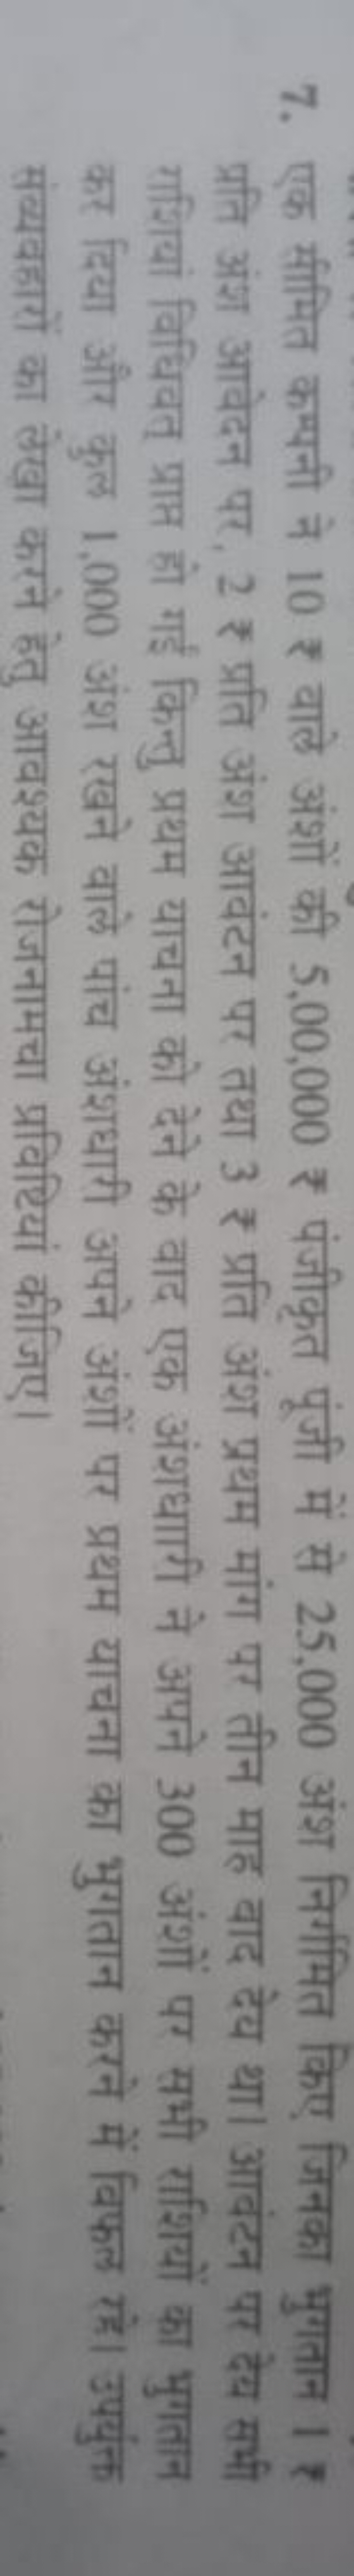 7. एक सीमित कम्पनी ने 10 ₹ वाले अंशों की 5,00,000 ₹ पंजीकृत पूंजी में से 25,000 अंश निर्गमित किए जिनका भुगतान 1 ₹
प्रति अंश आवेदन पर, 2 ₹ प्रति अंश आवंटन पर तथा 3 ₹ प्रति अंश प्रथम मांग पर तीन माह बाद देय था। आवंटन पर देय सभी
राशियां विधिवत् प्राप्त हो गईं किन्तु प्रथम याचना को देने के बाद एक अंशधारी ने अपने 300 अंशों पर सभी राशियों का भुगतान
कर दिया और कुल 1,000 अंश रखने वाले पांच अंशधारी अपने अंशों पर प्रथम याचना का भुगतान करने में विफल रहे। उपर्युक्त
संव्यवहारों का लेखा करने हेतु आवश्यक रोजनामचा प्रविष्टियां कीजिए।